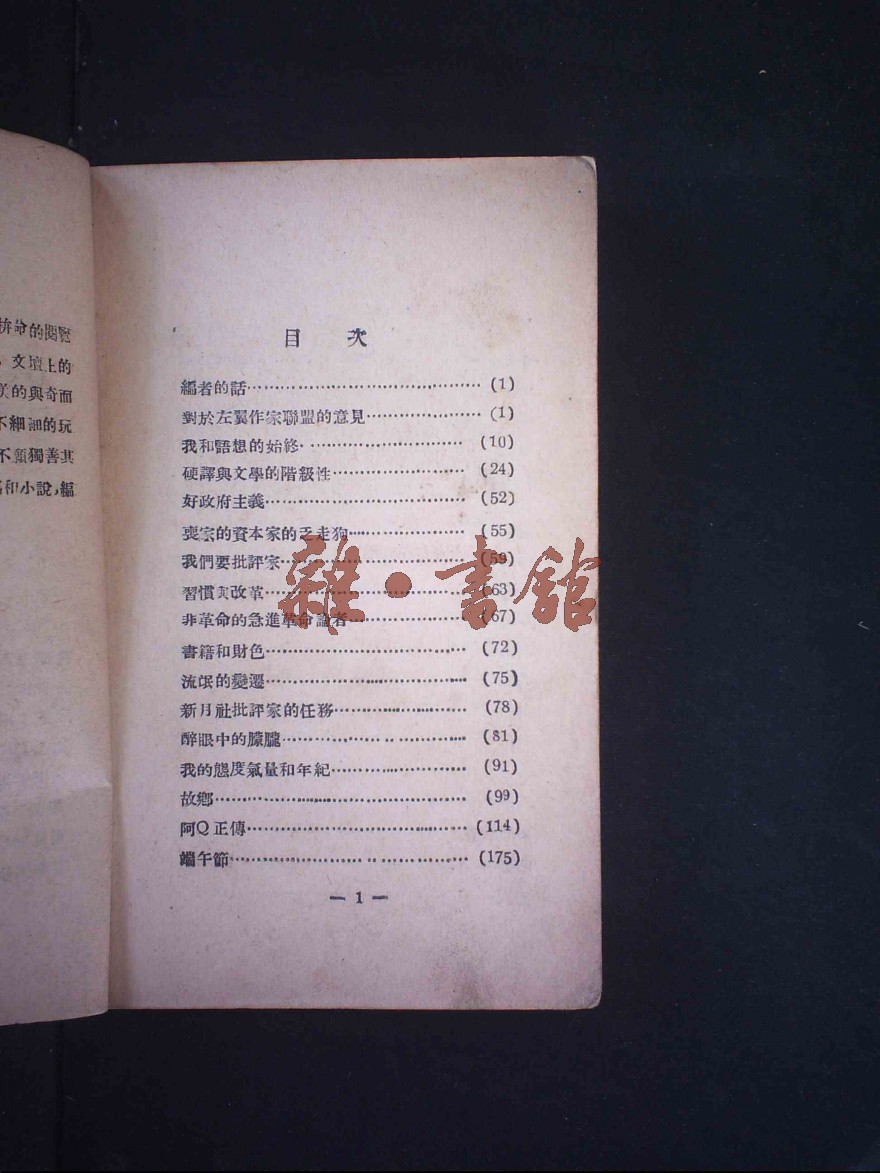 拚命的閱覽
文壇上的
的與奇而
不細細的玩
不願獨善其
和小說,編
目 次
編者的話……………………………………(1)
對於左翼作家聯盟的意見…………………(1)
我和語想的始修……………………………(10)
硬譯與文學的階級性………………………(24)
好政府主義…………………………………(52)
喪家的資本家的乏走狗……………………(55)
我們要批評家………………………………(59)
習慣與改革…………………………………(63)
非革命的急進革命論者……………………(67)
書籍和財色…………………………………(72)
流氓的變遷…………………………………(75)
新月社批評家的任務………………………(78)
醉眼中的朦朧………………………………(81)
我的態度氣量和年紀………………………(91)
故鄉…………………………………………(99)
阿Q正傳……………………………………(114)
端午節………………………………………(175)
— 1 —
雜·書館